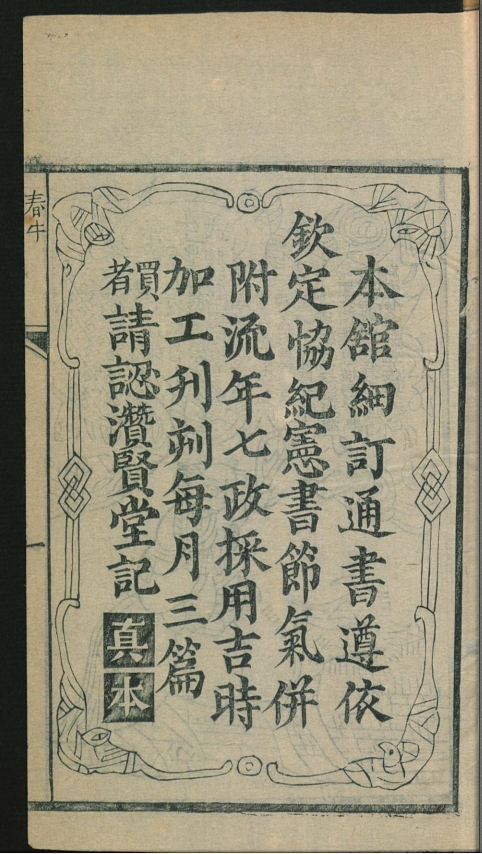 本舘細訂通書遵依
欽定恊紀憲書節氣併
附流年七政採用吉時
加工刋刷每月三篇
買者請認濽賢堂記真本
春牛
一